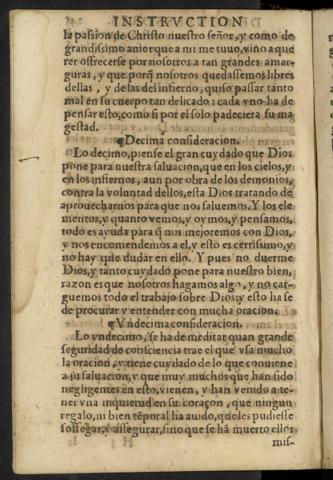 INSTRVCTION
la passion de Christo nuestro señor, y como de
grandissimo amor que a mi me tuuo, vino a que
rer offrecerse por nosotros a tan grandes amar-
guras, y que porq̃ nosotros quedassemos libres
dellas, y de las del infierno, quiso passar tanto
mal en su cuerpo tan delicado: cada vno ha de
pensar esto, como si por el solo padeciera su ma
gestad.
¶Decima consideracion.
Lo decimo, piense el gran cuydado que Dios
pone para nuestra saluacion, que en los cielos, y
en los infiernos, aun por obra de los demonios,
contra la voluntad dellos, esta Dios tratando de
aprouecharnos para que nos saluemos. Y los ele
mentos, y quanto vemos, y oymos, y pensamos,
todo es ayuda para q̃ nos mejoremos con Dios,
y nos encomendemos a el, y esto es certissimo, y
no hay que dudar en ello. Y pues no duerme
Dios, y tanto cuydado pone para nuestro bien,
razon es que nosotros hagamos algo, y no car-
guemos todo el trabajo sobre Dios: y esto ha se
de procurar y entender con mucha oracion.
¶Vndecima consideracion.
Lo vndecimo, se ha de meditar quan grande
seguridad de consciencia trae el que vsa mucho
la oracion, y tiene cuydado de lo que conuiene
a su saluacion, y que muy muchos que han sido
negligentes en esto, vienen, y han venido a te-
ner vna inquietud en su coraçon, que ningun
regalo, ni bien tẽporal ha auido, que les pudiesse
sossegar, y assegurar, sino que se hã muerto ellos
mis-